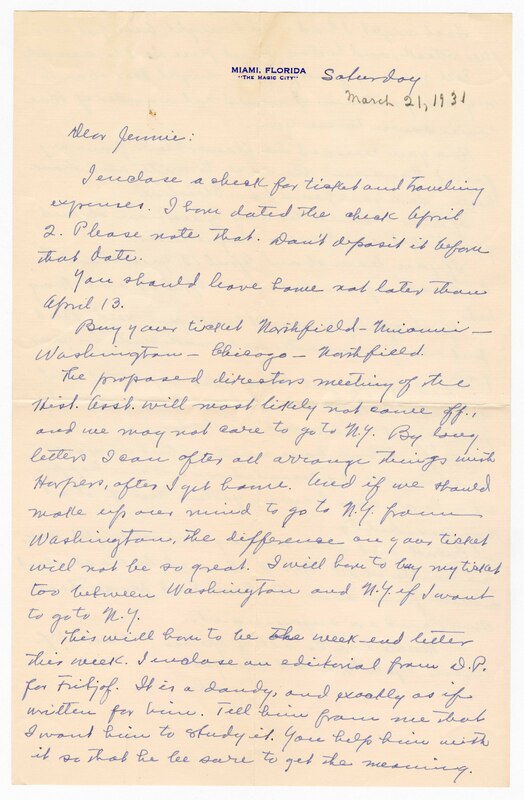 MIAMI, FLORIDA
"THE MAGIC CITY"
Saturday
March 21, 1931
Dear Jennie:
I enclose a check for ticket and traveling
expenses. I have dated the check April
2. Please note that. Don't deposit it before
that date.
You should leave home not later than
April 13.
Buy your ticket Northfield - Miami -
Washington - Chicago - Northfield.
The proposed directors meeting of the
Hist. Asst. will most likely not come off.,
and we may not care to go to N.Y. By long
letters I can after all arrange things with
Harpers, after I get home. And if we should
make up our mind to go to N.Y. from
Washington, the difference on your ticket
will not be so great. I will have to buy my ticket
too between Washington and N.Y. if I want
to go to N.Y.
This will have to be the week-end letter
this week. I enclose an editorial from D.P.
for Fritjof. It is a dandy, and exactly as if
written for him. Tell him from me that
I want him to study it. You help him with
it so that he be sure to get the meaning.